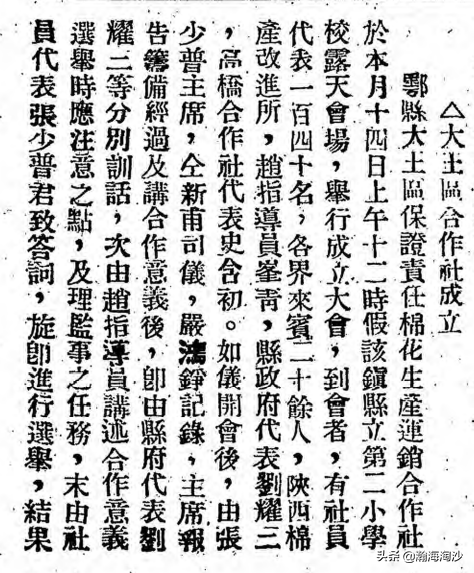 △大王區合作社成立
鄠縣大王區保證責任棉花生產運銷合作社
於本月十四日上午十二時假該鎮縣立第二小學
校露天會場，舉行成立大會，到會者，有社員
代表一百四十名，各界來賓二十餘人，陝西棉
產改進所，趙指導員峯青，縣政府代表劉耀三
，高橋合作社代表史含初。如儀開會後，由張
少普主席，仝新甫司儀，嚴鴻錚記錄，主席報
告籌備經過及講合作意義後，卽由縣府代表劉
耀三等分別訓話，次由趙指導員講述合作意義
選舉時應注意之點，及理監事之任務，末由社
員代表張少普君致答詞，旋卽進行選舉，結果
头条 @瀚海淘沙